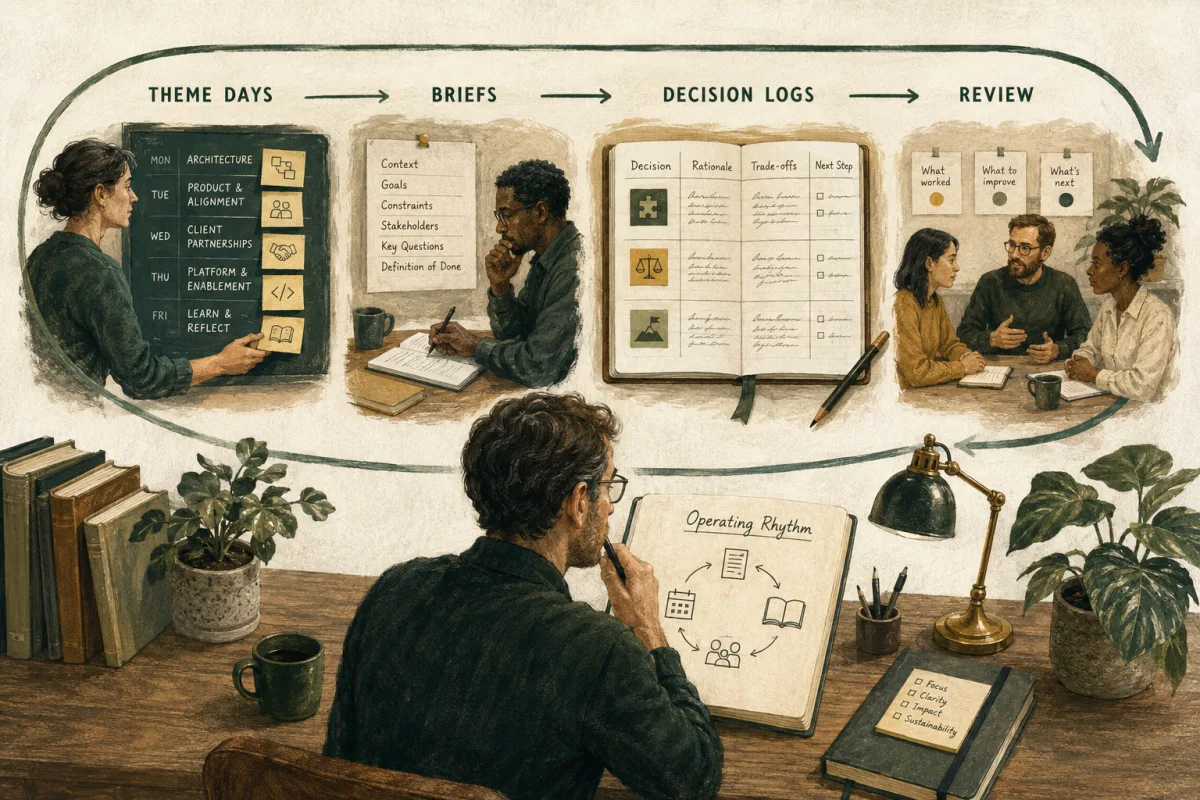 THEME DAYS
BRIEFS
DECISION LOGS
REVIEW
MON
ARCHITECTURE
TUE
PRODUCT &
ALIGNMENT
WED
CLIENT
PARTNERSHIPS
THU
PLATFORM &
ENABLEMENT
</>
FRI
LEARN &
REFLECT
Context
Goals
Constraints
Stakeholders
Key Questions
Definition of Done
Decision
Rationale
Trade-offs
Next Step
What
worked
What to
improve
What's
next
Operating Rhythm
Focus
Clarity
Impact
Sustainability